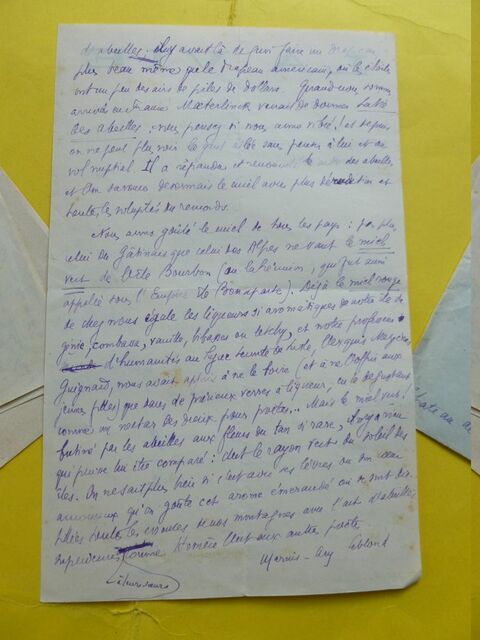 d'abeilles. Il y avait là de quoi faire un drapeau
plus beau même que le drapeau américain, où les étoiles
ont un peu des airs de piles de dollars. Quand nous sommes
arrivés en France Maeterlinck venait de donner La Vie
des abeilles, nous pensez si nous avons vibré! et depuis
on ne peut plus voir le sans penser à lui et au
vol nuptial. Il a répandu et renouvelé le des abeilles
et l'on savoure désormais le miel avec plus de et
toutes les voluptés du remords.
Nous avons goûté le miel de tous les pays: pas plus
celui du Gâtinais que celui des Alpes ne vaut le miel
vert de l'île Bourbon (ou la Réunion, qui fut aussi
appelée sous l'Empire île Bonaparte). Déjà le miel rouge
de chez nous égale les liqueurs si aromatiques de notre île
génie, combava, vanille, bibasse ou letchy, et notre professeur
d'humanités au lycée Leconte de Lisle,
Guignard, nous avait appris à ne le boire (et à ne l'offrir aux
jeunes filles) que dans de précieux verres à liqueur, en le dégustant
comme un nectar des dieux pour poètes... Mais le miel vert!
butiné par les abeilles aux fleurs du tan si rare, il n'y a rien
qui puisse lui être comparé: c'est le rayon vert du soleil des
îles. On ne sait plus bien si c'est avec ses lèvres ou son cœur
amoureux qu'on goûte cet arome émeraudé où se sont
toutes les de nos montagnes avec l'art d'abeilles
supérieures comme Homère l'est aux autres poètes.
Marius-Ary Leblond